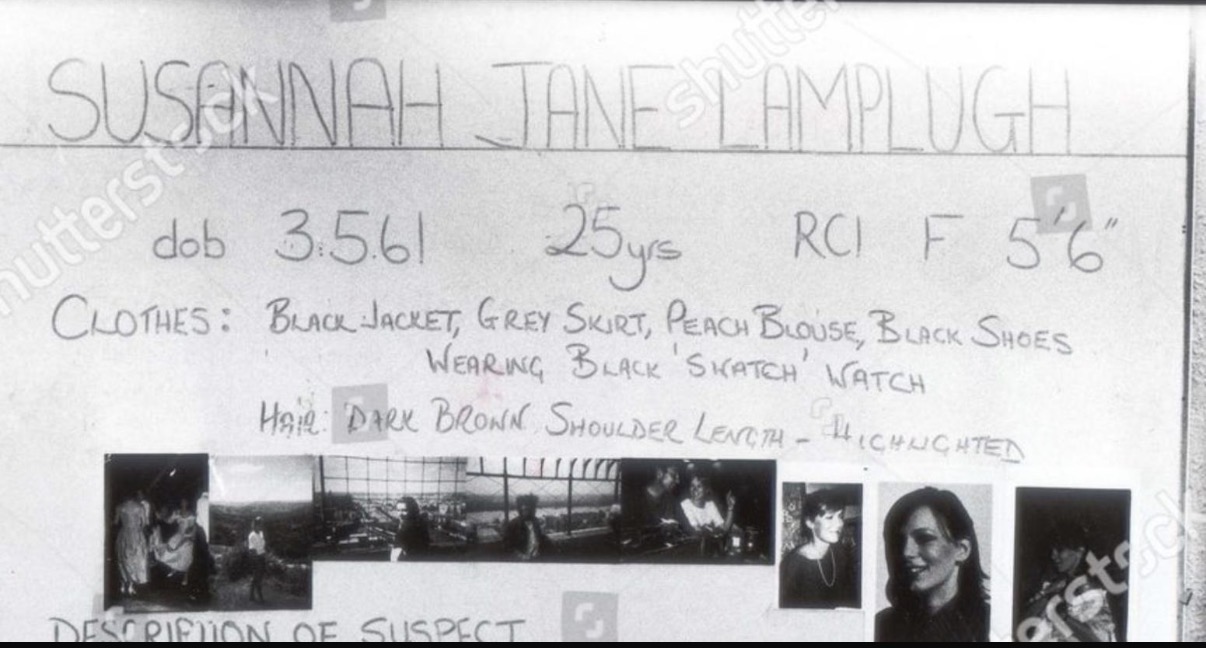 SUSANNAH JANE LAMPLUGH
dob 3.5.61 25yrs RC1 F 5'6"
CLOTHES: BLACK JACKET, GREY SKIRT, PEACH BLOUSE, BLACK SHOES
WEARING BLACK 'SWATCH' WATCH
HAIR: DARK BROWN SHOULDER LENGTH - HIGHLIGHTED
DESCRIPTION OF SUSPECT
shutterstock
shutterstock
shutterstock